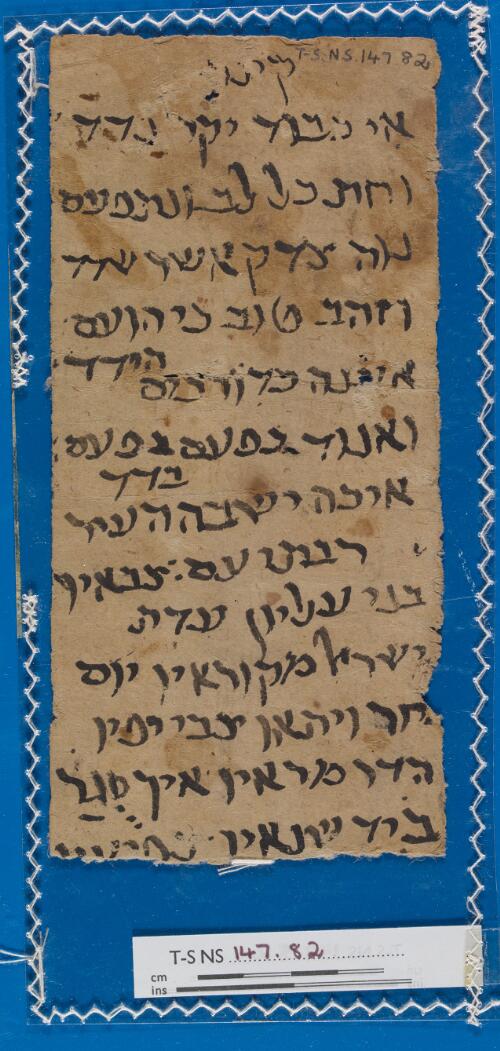 T-S.NS.147 82
קינו
אי כבוד יקר נדד
וחת כל לב ונתפעם
נוה צדק אשר שדד
וזהב טוב כי הועם
הידד
ואנוד בפעם בפעם
בדד
איכה ישבה העיר
רבתי עם: צבאיך
בני עליון עדת
ישראל מקוראיו יום
חר ויראון צבי יפיו
הדר מראיו איך סגר
ביד שונאיו
T-S NS 147.82
cm
ins